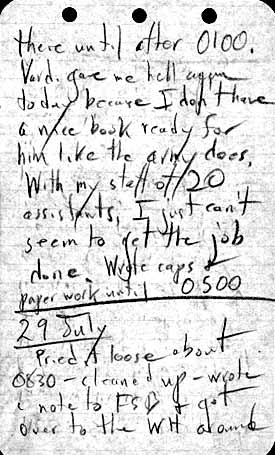 there until after 0100.
Vard. gave me hell again
today because I don't have
a nice book ready for
him like the army does.
With my staff of 20
assistants, I just can't
seem to get the job
done. Wrote caps &
paper work until 0500
29 July
Pried loose about
0630 - cleaned up - wrote
a note to FSD & got
over to the WH around